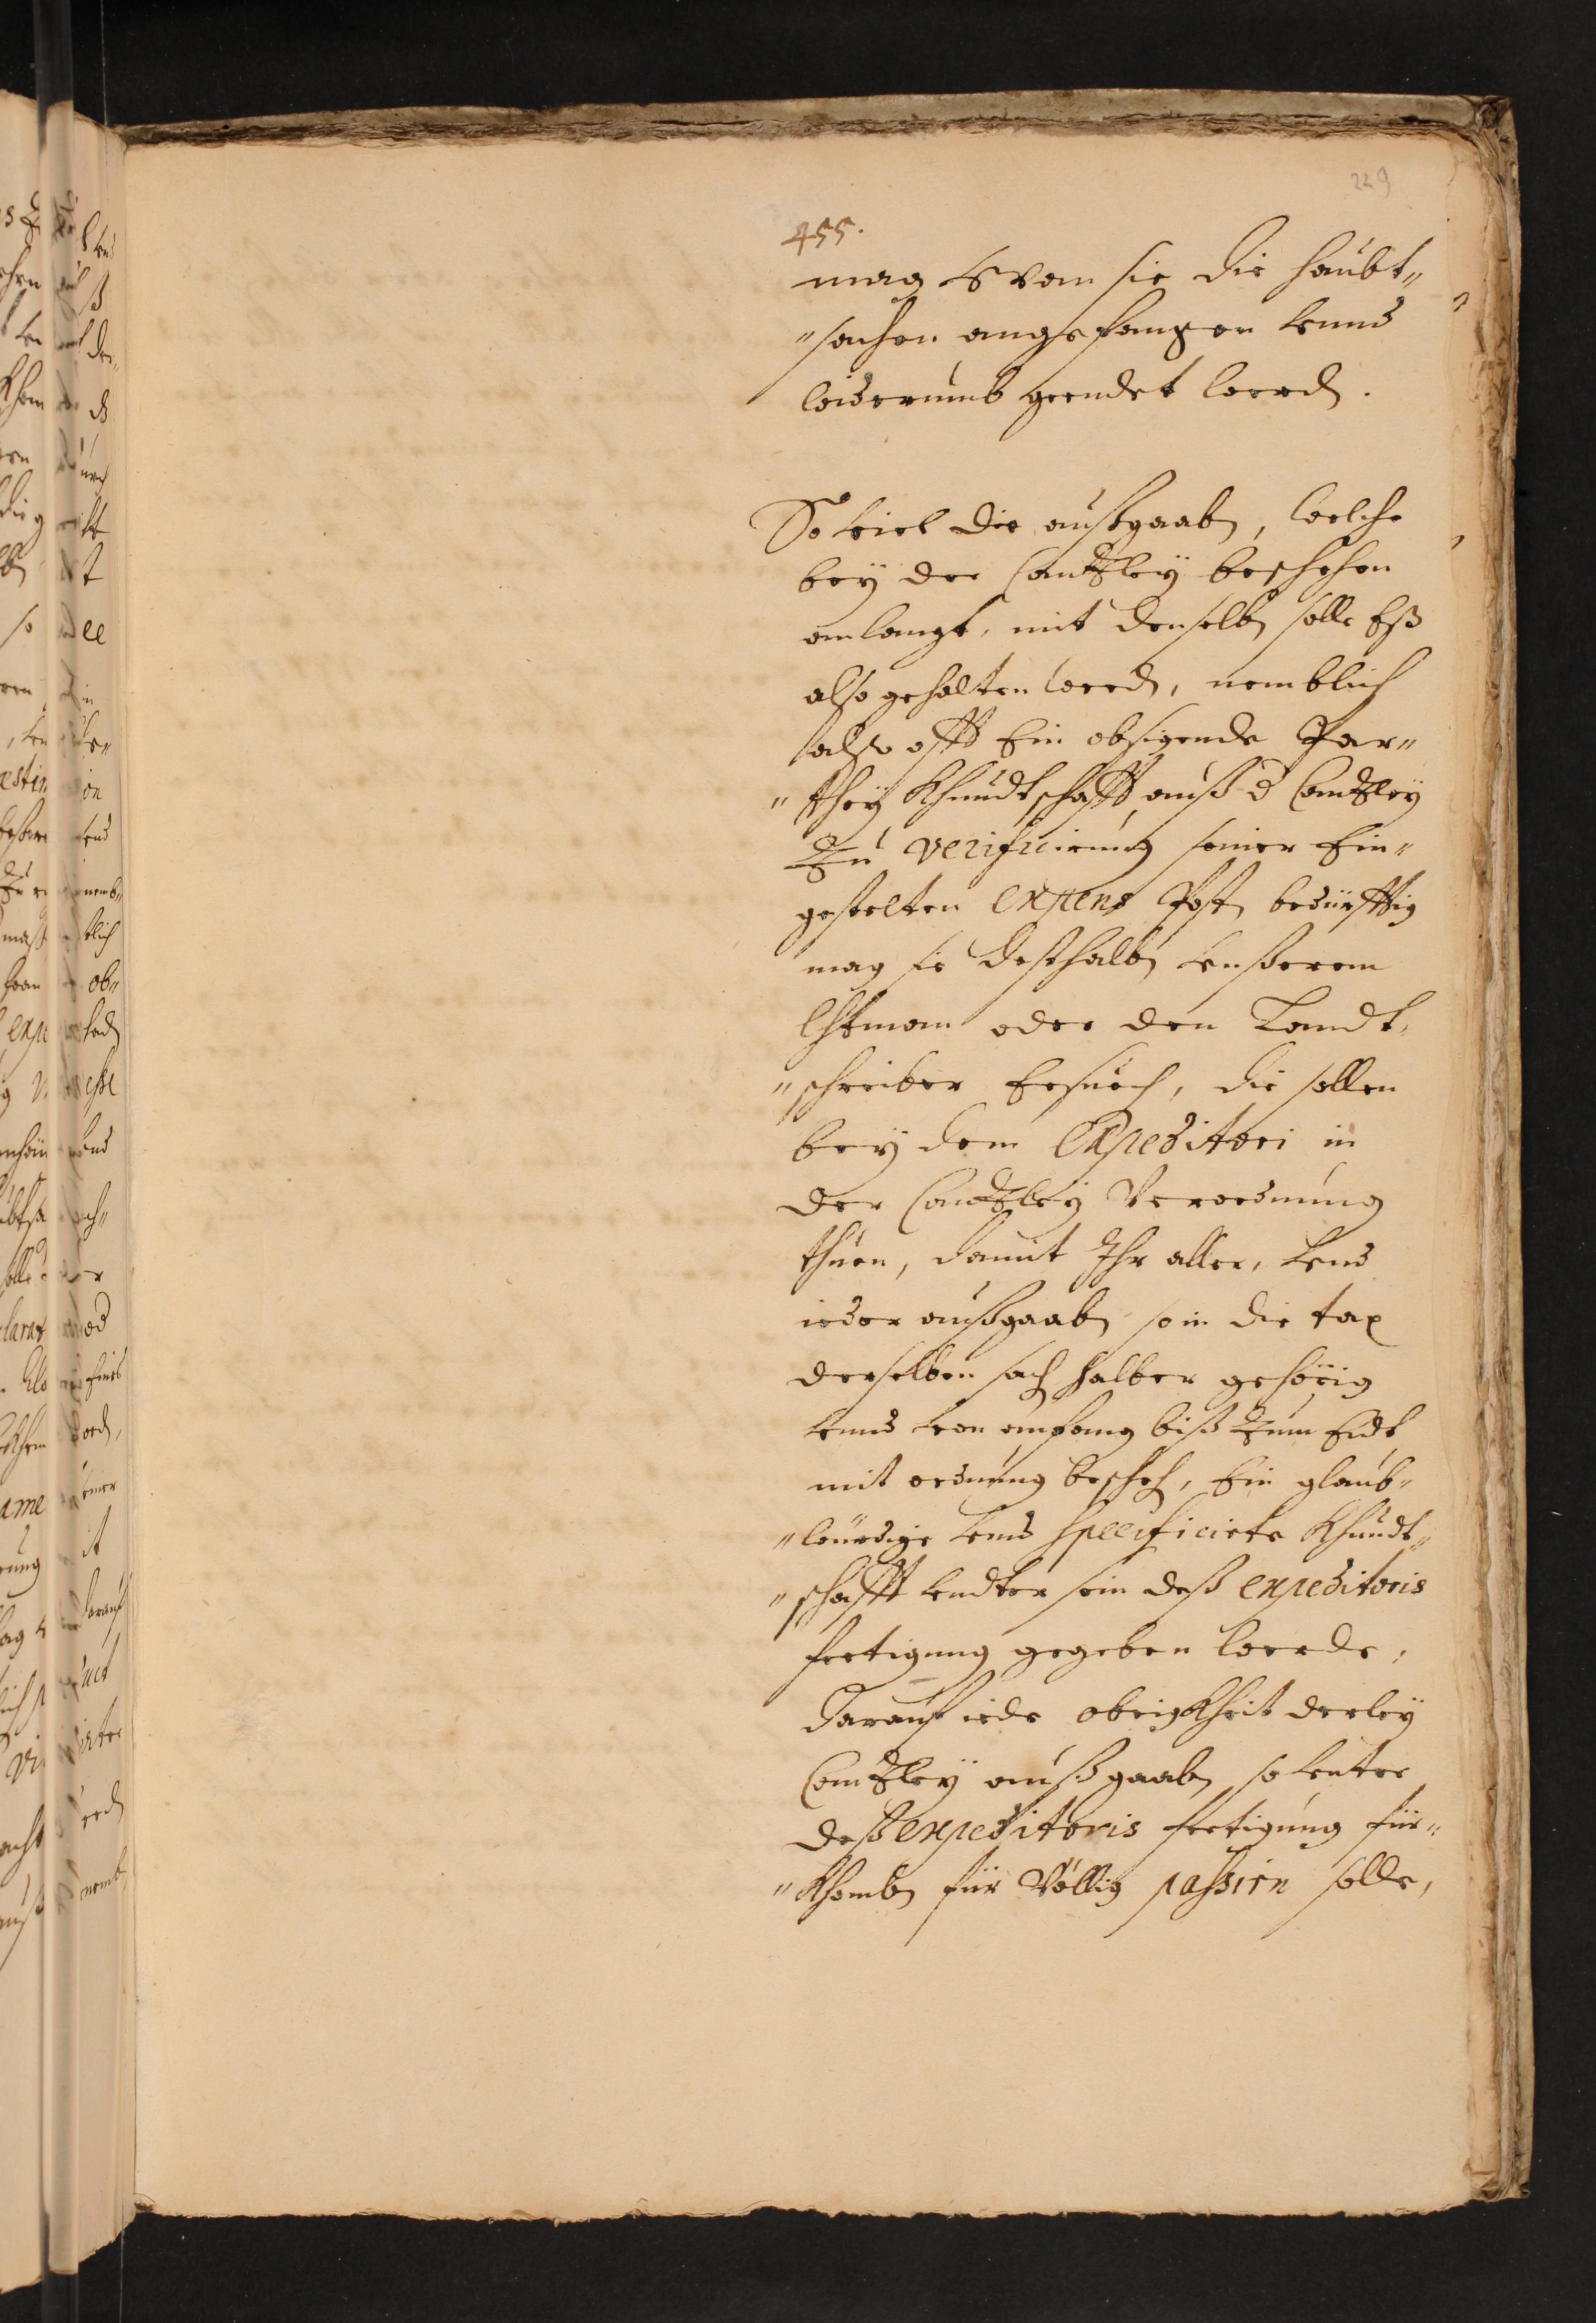 229
455.
mag Wan sie die haubt„
„sachen angefangen vnnd
widerumb geendet werdn.
So viel die außgaabn, welche
bey der Cantzley beschehen
anlangt, mit denselbn solle Eß
also gehalten werdn, nemblich
also offt Ein obsigende Par„
„they Khundtschafft auß d Cantzley
Zu verificierung seiner Ein„
gestelten expens Postn bedürfftig
mag sie deßhalbn vnßerem
haubtman oder den Landt„
„schreiber Ersuech, die sollen
bey dem Expeditori in
der Cantzley Verordnung
thuen, damit Ihr aller, vnd
ieder außgaabn so in die tax
derselben sach halber gehörig
vnnd von anfang biß Zum Endt
mit ordnung bescheh, Ein glaub„
„würdige vnd specificierte Khundt„
„schafft vndter sein deß expeditoris
fertigung gegeben werde,
Darauf iede obrigkheit derley
Cantzley außgaabn so vnter
deß expeditoris fertigung für„
„khombn für Völlig passirn solle,